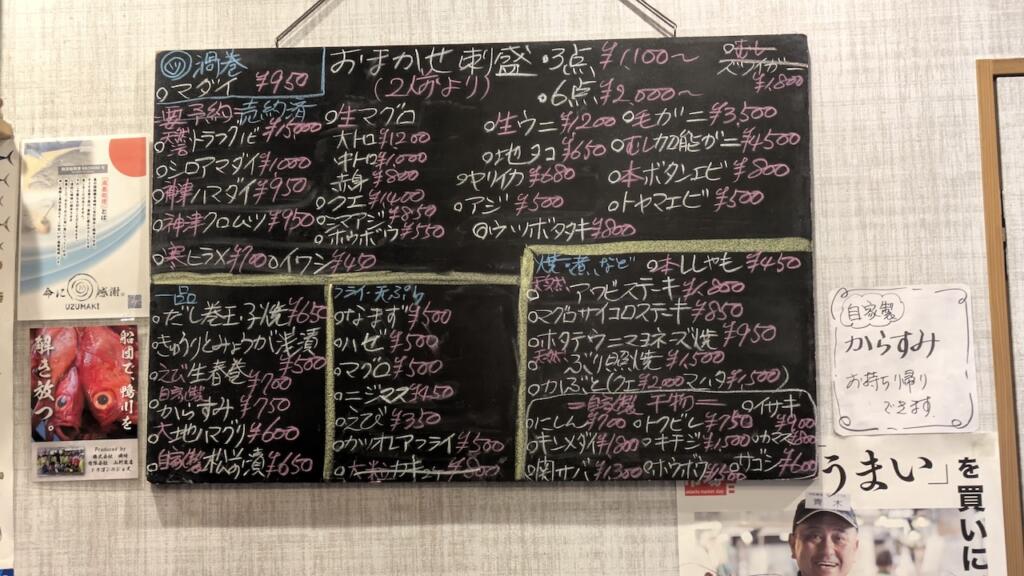 渦巻
マダイ ¥950
おまかせ 刺盛 3点 ¥1,100〜
(2人前より)
6点 ¥2,000〜
¥1,800
予約 売約済
シロアマダイ ¥1,000
ハマダイ ¥950
神津クロムツ ¥950
ヒラメ ¥700
イワシ ¥450
生マグロ
大トロ ¥1,200
中トロ ¥1,000
赤身 ¥800
クエ ¥1,400
シマアジ ¥850
ホウボウ ¥550
生ウニ ¥1,200
地タコ ¥650
ヤリイカ ¥680
アジ ¥500
ウツボタタキ ¥800
毛ガニ ¥3,500
加能ガニ ¥4,500
本ボタンエビ ¥800
トヤマエビ ¥500
一品
だし巻玉子焼 ¥650
きゅうりとみょうが浅漬 ¥500
えび生春巻 ¥700
自家製
からすみ ¥750
大地ハマグリ ¥600
自家製松前漬 ¥650
フライ・天ぷら
なまず ¥500
ハゼ ¥500
マグロ ¥500
ニジマス ¥450
えび ¥350
カツオレアフライ ¥500
焼・煮など
本ししゃも ¥450
天然 アワビステーキ ¥1,800
マグロサイコロステーキ ¥850
ホタテウニマヨネーズ焼 ¥950
天然 ぶり照焼 ¥1,500
かぶと(クエ ¥2,000 マハタ ¥1,500)
=自家製 干物=
にしん ¥700
トクビレ ¥750
イサキ ¥900
キンメダイ ¥1,800
キチジ ¥1,500
カマス ¥800
関サバ ¥1,300
ホウボウ
サゴシ ¥600
命に感謝。
UZUMAKI
船団で、鴨川を
解き放つ。
Produced by
自家製
からすみ
お持ち帰り
できます
うまい」を買いに
青木